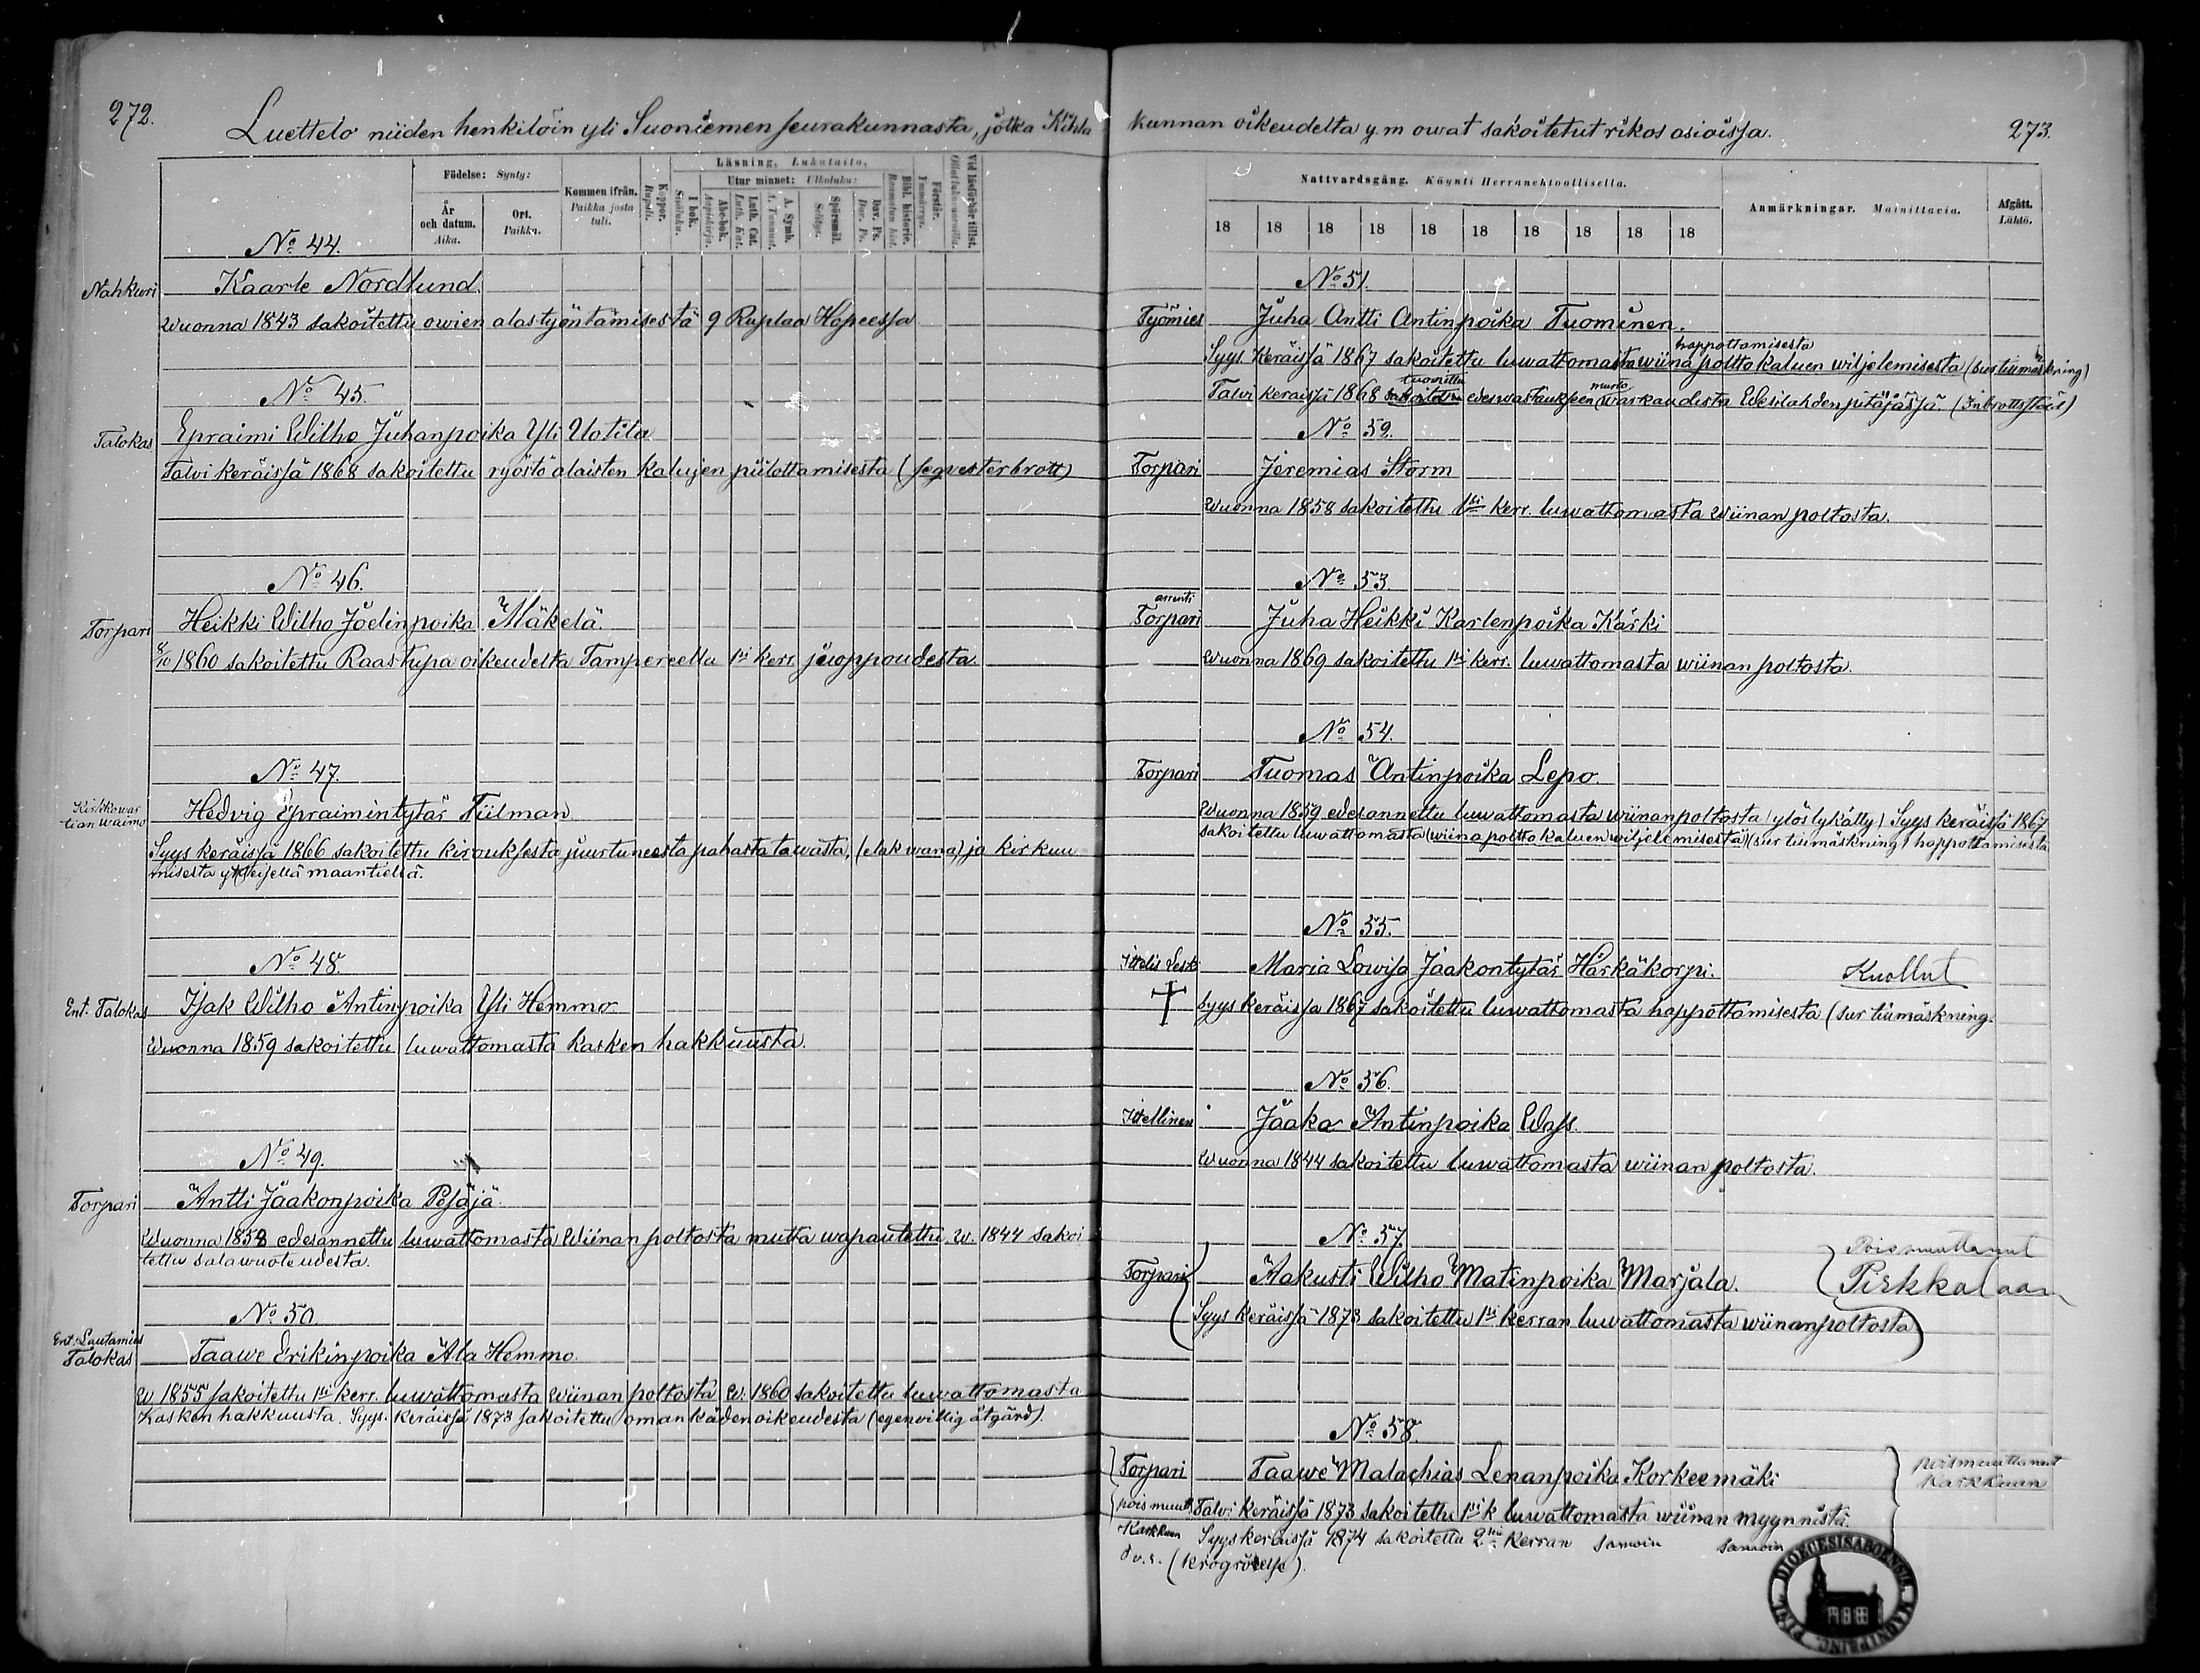 272.
Luettelo niiden henkilöin yli Suoniemen seurakunnasta, jotka Kihla
Läsning, Lukutaito,
Födelse: Synty:
Utur minnet: Ulkoluku:
Kommen ifrån.
Paikka josta tuli.
År och datum. Aika.
Ort. Paikka.
Koppor. Rupuli.
I bok. Sisäluku.
Abc-bok. Aapiskirja.
Luth. Cat. Luth. Kat.
A. Symb. A. Tunnust.
Spörsmål. Selitys.
Dav. Ps. Dav. Ps.
Bibl. historie. Raamatun hist.
Förstår. Ymmärrys.
Vid läsförhör tillst. Ollut lukukuoroilla.
No 44.
Nahkuri Kaarle Nordlund.
Wuonna 1843 sakoitettu owien alastyöntämisestä 9 Ruplaa Hopeessa
No 45.
Talokas Epraimi Wilho Juhanpoika Yli Uotila
Talvi keräissä 1868 sakoitettu ryöstö alaisten kalujen piilottamisesta (seqvesterbrott)
No 46.
Torpari Heikki Wilho Joelinpoika Mäkelä.
8/10 1860 sakoitettu Raastupa oikeudelta Tampereella 1si kerr. juoppoudesta.
No 47.
Kirkkowar
tian waimo Hedvig Epraimintytär Tiilman
Syys keräissä 1866 sakoitettu kirouksesta juurtuneesta pahasta tawasta, (elak wana) ja kirkuu
misesta yleisellä maantiellä.
No 48.
Ent. Talokas Isak Wilho Antinpoika Yli Hemmo
Wuonna 1859 sakoitettu luwattomasta kasken hakkuusta.
No 49.
Torpari Antti Jaakonpoika Pesäjä.
Wuonna 1858 edesannettu luwattomasta Wiinan poltosta mutta wapautettu. w. 1844 sakoi
tettu salawuoteudesta.
No 50
Ent. Lautamies
Talokas Taawe Erikinpoika Ala Hemmo.
W. 1855 sakoitettu 1si kerr. luwattomasta wiinan poltosta W. 1860 sakoitettu luwattomasta
Kasken hakkuusta. Syys. keräissä 1873 sakoitettu oman käden oikeudesta (egenvillig åtgärd).
kunnan oikeudelta y. m owat sakoitetut rikos asioissa.
273.
Nattvardsgång. Käynti Herranehtoollisella.
Anmärkningar. Mainittavia.
Afgått. Lähtö.
18 18 18 18 18 18 18 18 18 18
No 51.
Työmies Juha Antti Antinpoika Tuominen.
happottamisesta
Syys keräissä 1867 sakoitettu luwattomasta wiina poltto kaluen wiljelemisestä (surtiimäskning)
tuomittu murto
Talvi keraissä 1868 sakoitettu edeswastaukseen warkaudesta Wesilahden pitäjässä. (Inbrottstöld)
No 52.
Torpari Jeremias Storm
Wuonna 1858 sakoitettu 1si kerr. luwattomasta wiinan poltosta.
No 53.
arrenti
Torpari Juha Heikki Karlenpoika Kärki
Wuonna 1869 sakoitettu 1si kerr. luwattomasta wiinan poltosta.
No 54.
Torpari Tuomas Antinpoika Lepo.
Wuonna 1859 edesannettu luwattomasta wiinanpoltosta (ylöslykätty) Syys keräissä 1867
sakoitettu luwattomasta (wiina poltto kaluen wiljelemisestä) (surtiimäskning) happottamisesta
No 55.
Ittelis Leski Maria Lowisa Jaakontytär Härkäkorpi. Kuollut
Syys keräissa 1867 sakoitettu luwattomasta happottamisesta (surtiimäskning.
No 56.
Ittellinen Jaako Antinpoika Wass.
Wuonna 1844 sakoitettu luwattomasta wiinan poltosta.
No 57.
Torpari Aakusti Wilho Matinpoika Marjala.
Pois muuttanut
Pirkkalaan
Syys keräissä 1873 sakoitettu 1si kerran luwattomasta wiinanpoltosta
No 58
Torpari Taawe Malachias Lenanpoika Korkeemäki
poismuuttanut
Karkkuun
pois muutt. Talvi keräissä 1873 sakoitettu 1si k luwattomasta wiinan myynnistä.
Karkkuun Syyskeräissä 1874 sakoitettu 2si Kerran samoin samoin
(krögrörelse).
DIOECESIS ABOENSIS